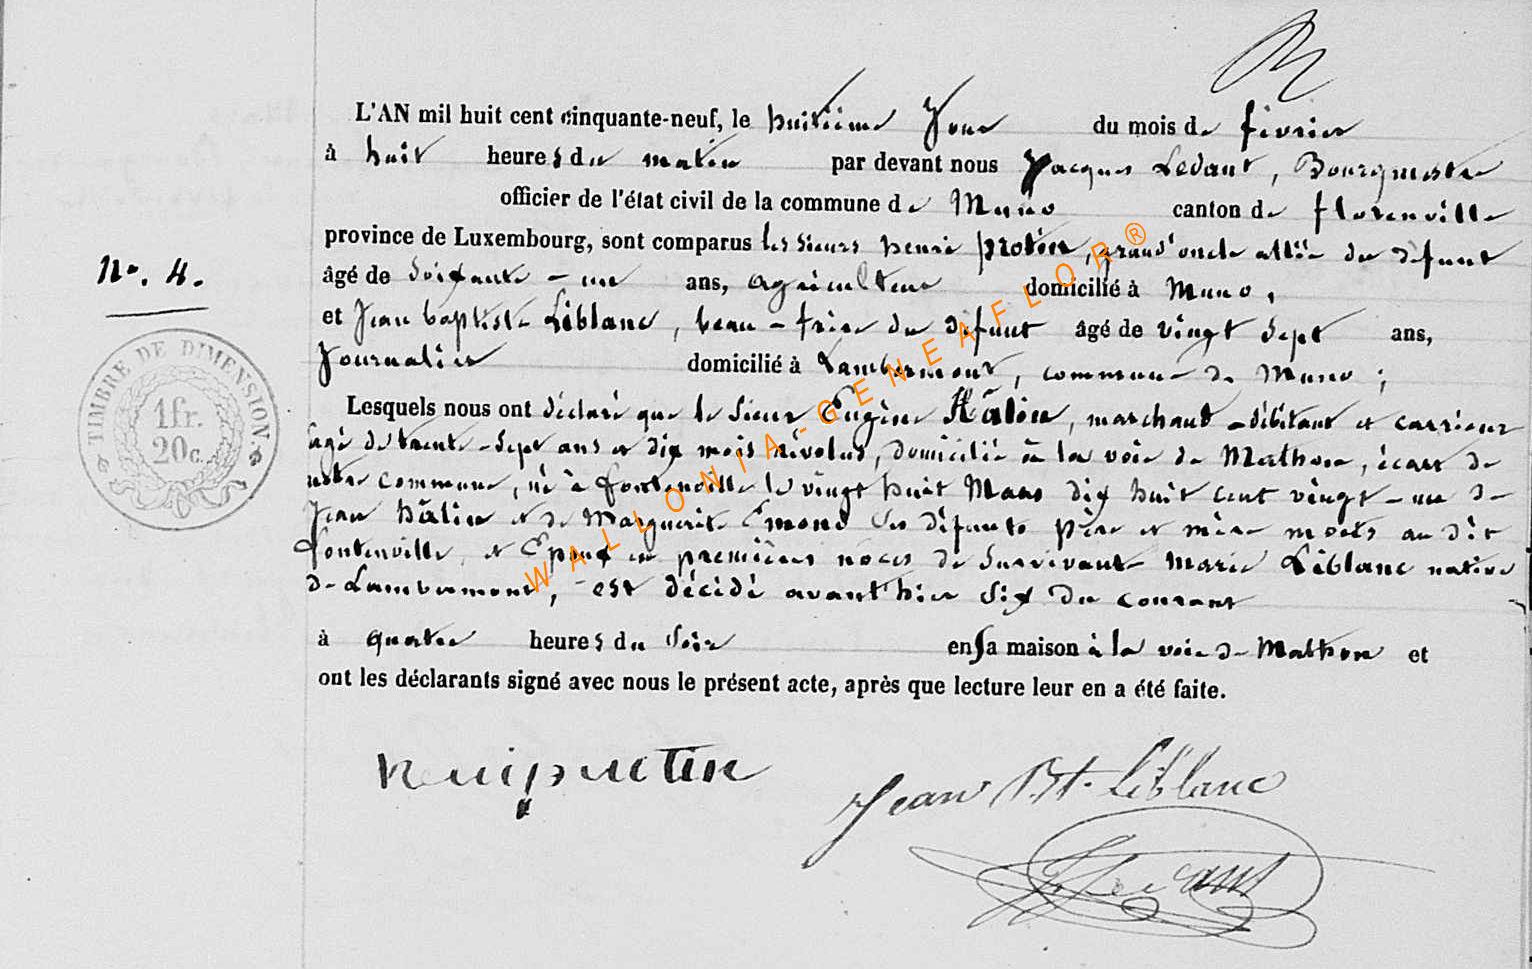 L'AN mil huit cent cinquante-neuf, le huitième Jour du mois de février
à huit heures du matin par devant nous Jacques Ledant, Bourgmestre
officier de l'état civil de la commune de Muno canton de florenville
province de Luxembourg, sont comparus les sieurs henri protin, grand'oncle allié du défunt
No. 4.
âgé de Soixante-un ans, agriculteur domicilié à Muno,
et Jean baptiste Leblanc, beau-frère du défunt âgé de vingt Sept ans,
Journalier domicilié à Lambermont, commune de Muno;
TIMBRE DE DIMENSION.
1fr.
20c.
Lesquels nous ont déclaré que le Sieur Eugène Hâlin, marchand-débitant et carrieur
âgé de trente-Sept ans et dix mois révolus, domicilié à la voie de Mathon, écart de
notre commune, né à fontenville le vingt huit Mars dix huit cent vingt-un de
Jean hâlin et de Marguerite Emond Ses défunts père et mère morts au dit
fontenville, et Epoux en premières nôces de Survivante Marie Leblanc native
de Lambermont, est décédé avant'hier Six du courant
à quatre heures du Soir en sa maison à la voie de Mathon et
ont les déclarants signé avec nous le présent acte, après que lecture leur en a été faite.
henri protin
Jean Bt. Leblanc
J Ledant
WALLONIA-GENEAFLOR®